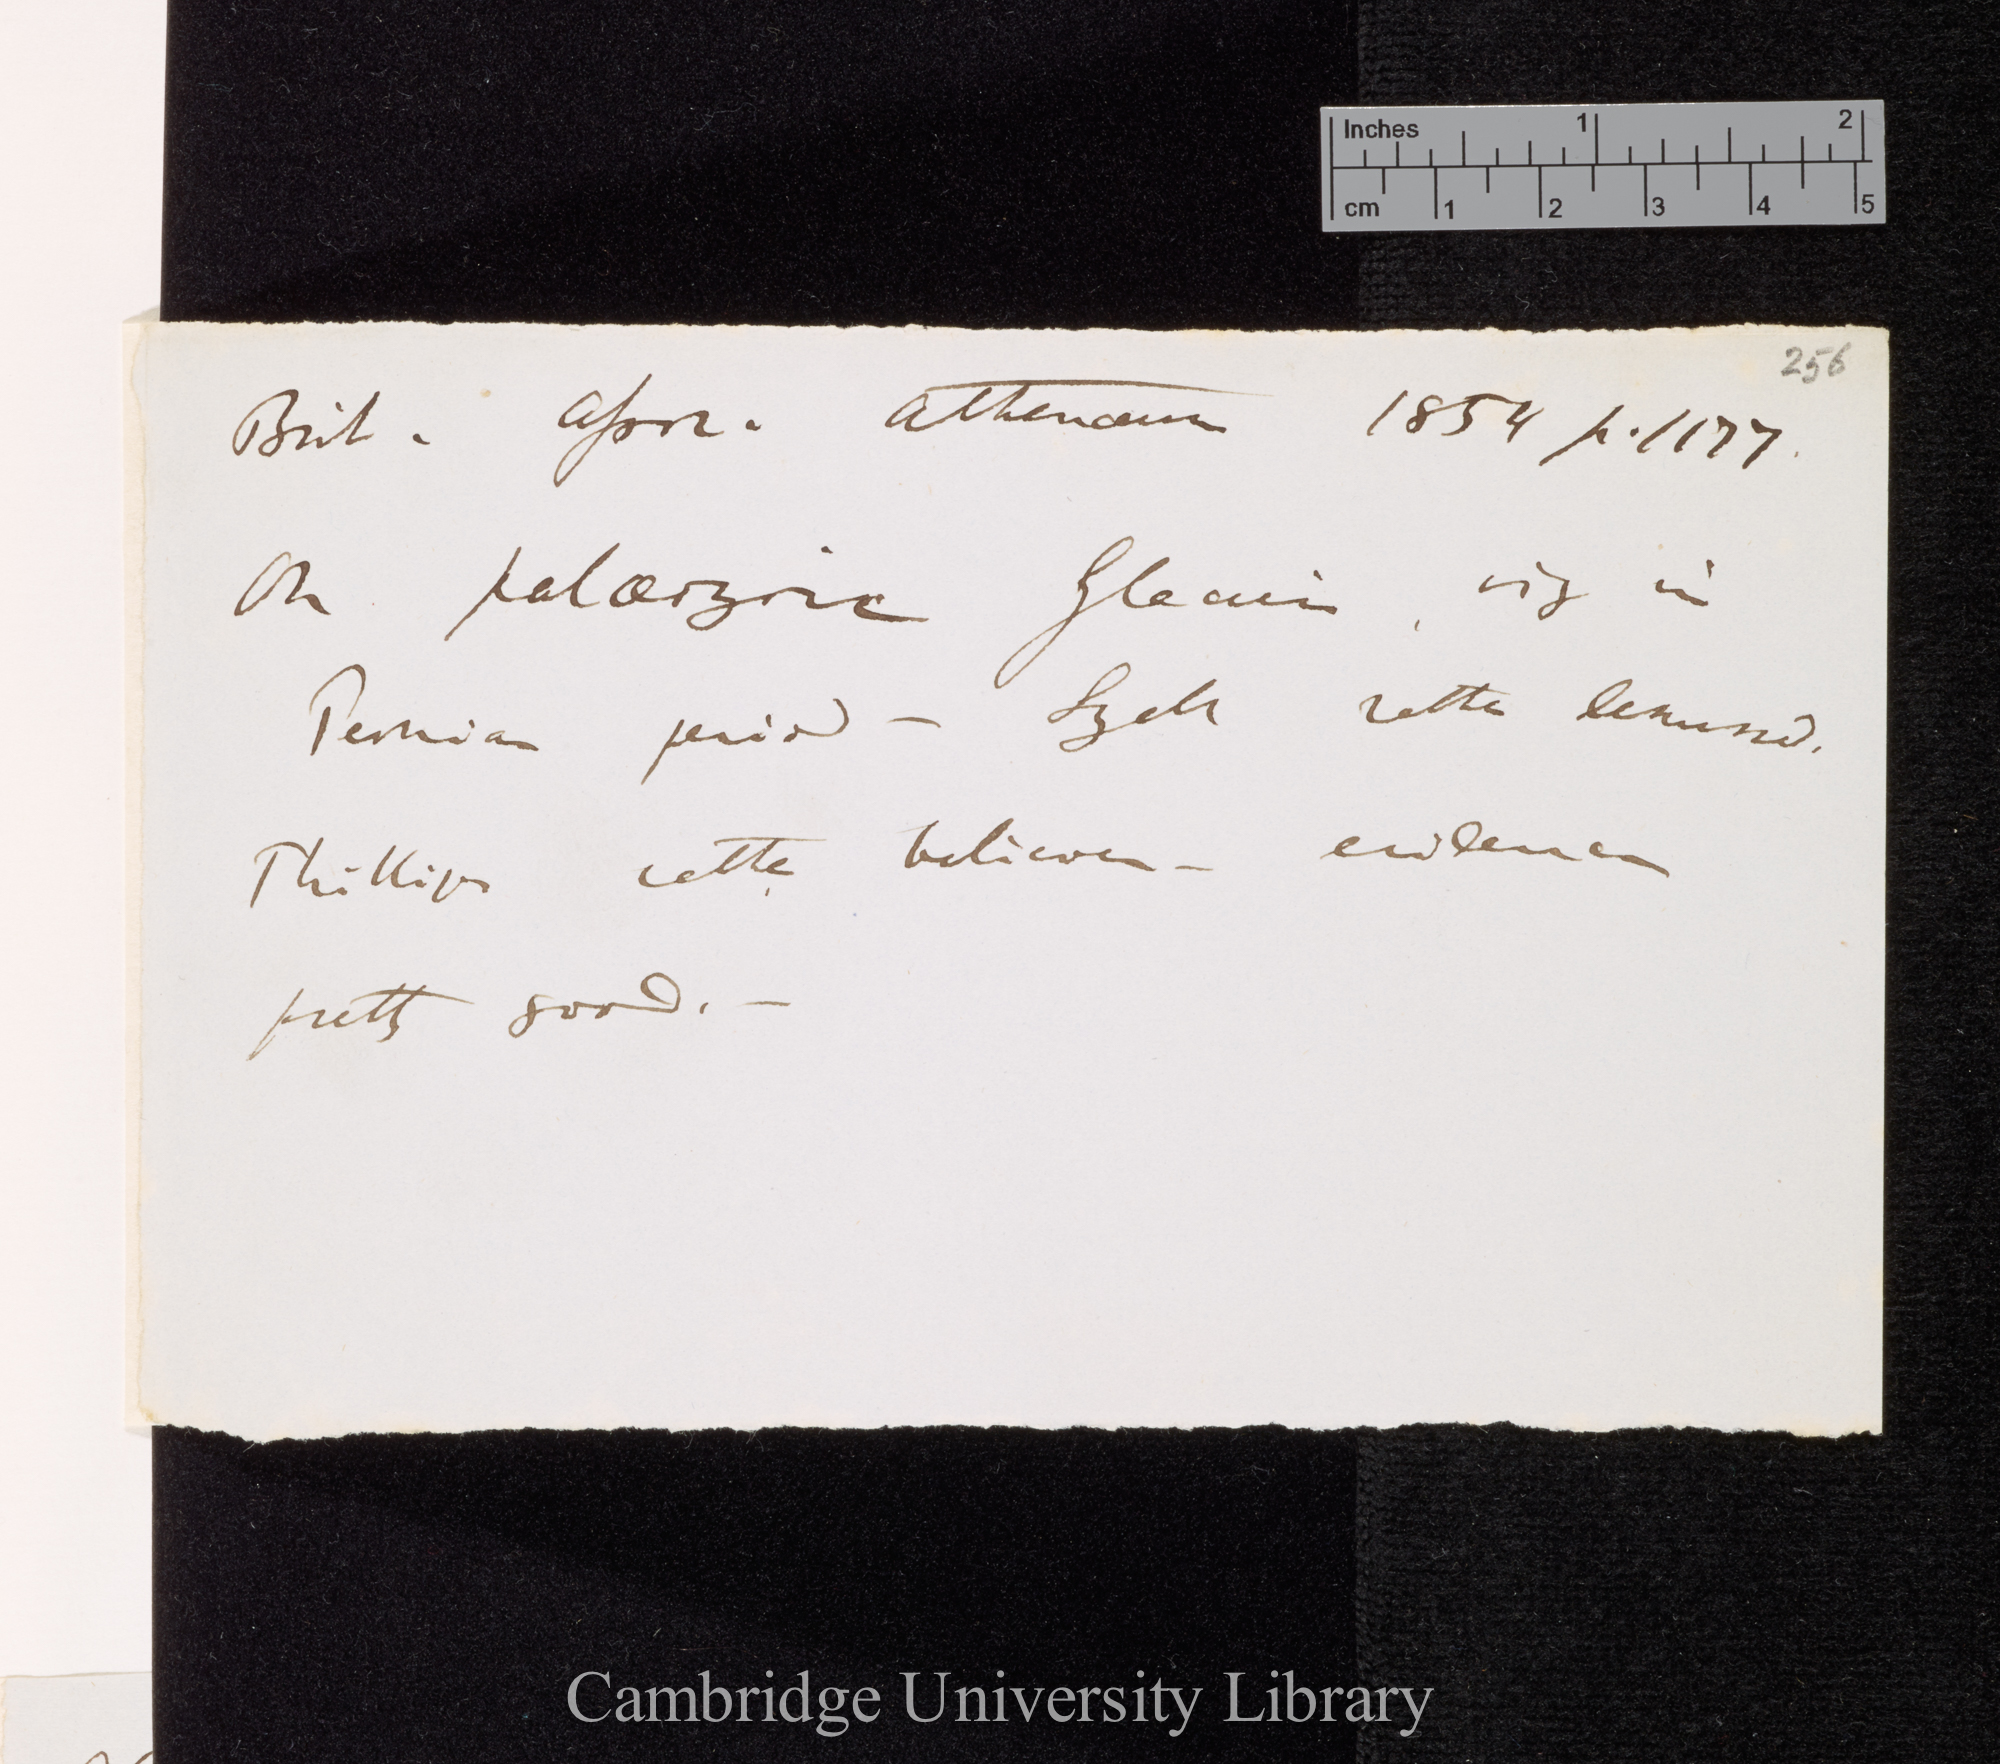 Inches 1 2
cm 1 2 3 4 5
256
Brit. Assoc. Athenæum 1854 p. 1177.
On palæozoic Glaciers, viz in
Permian period — Lyell rather demurred.
Phillips rather believes — evidence
pretty good. —
Cambridge University Library